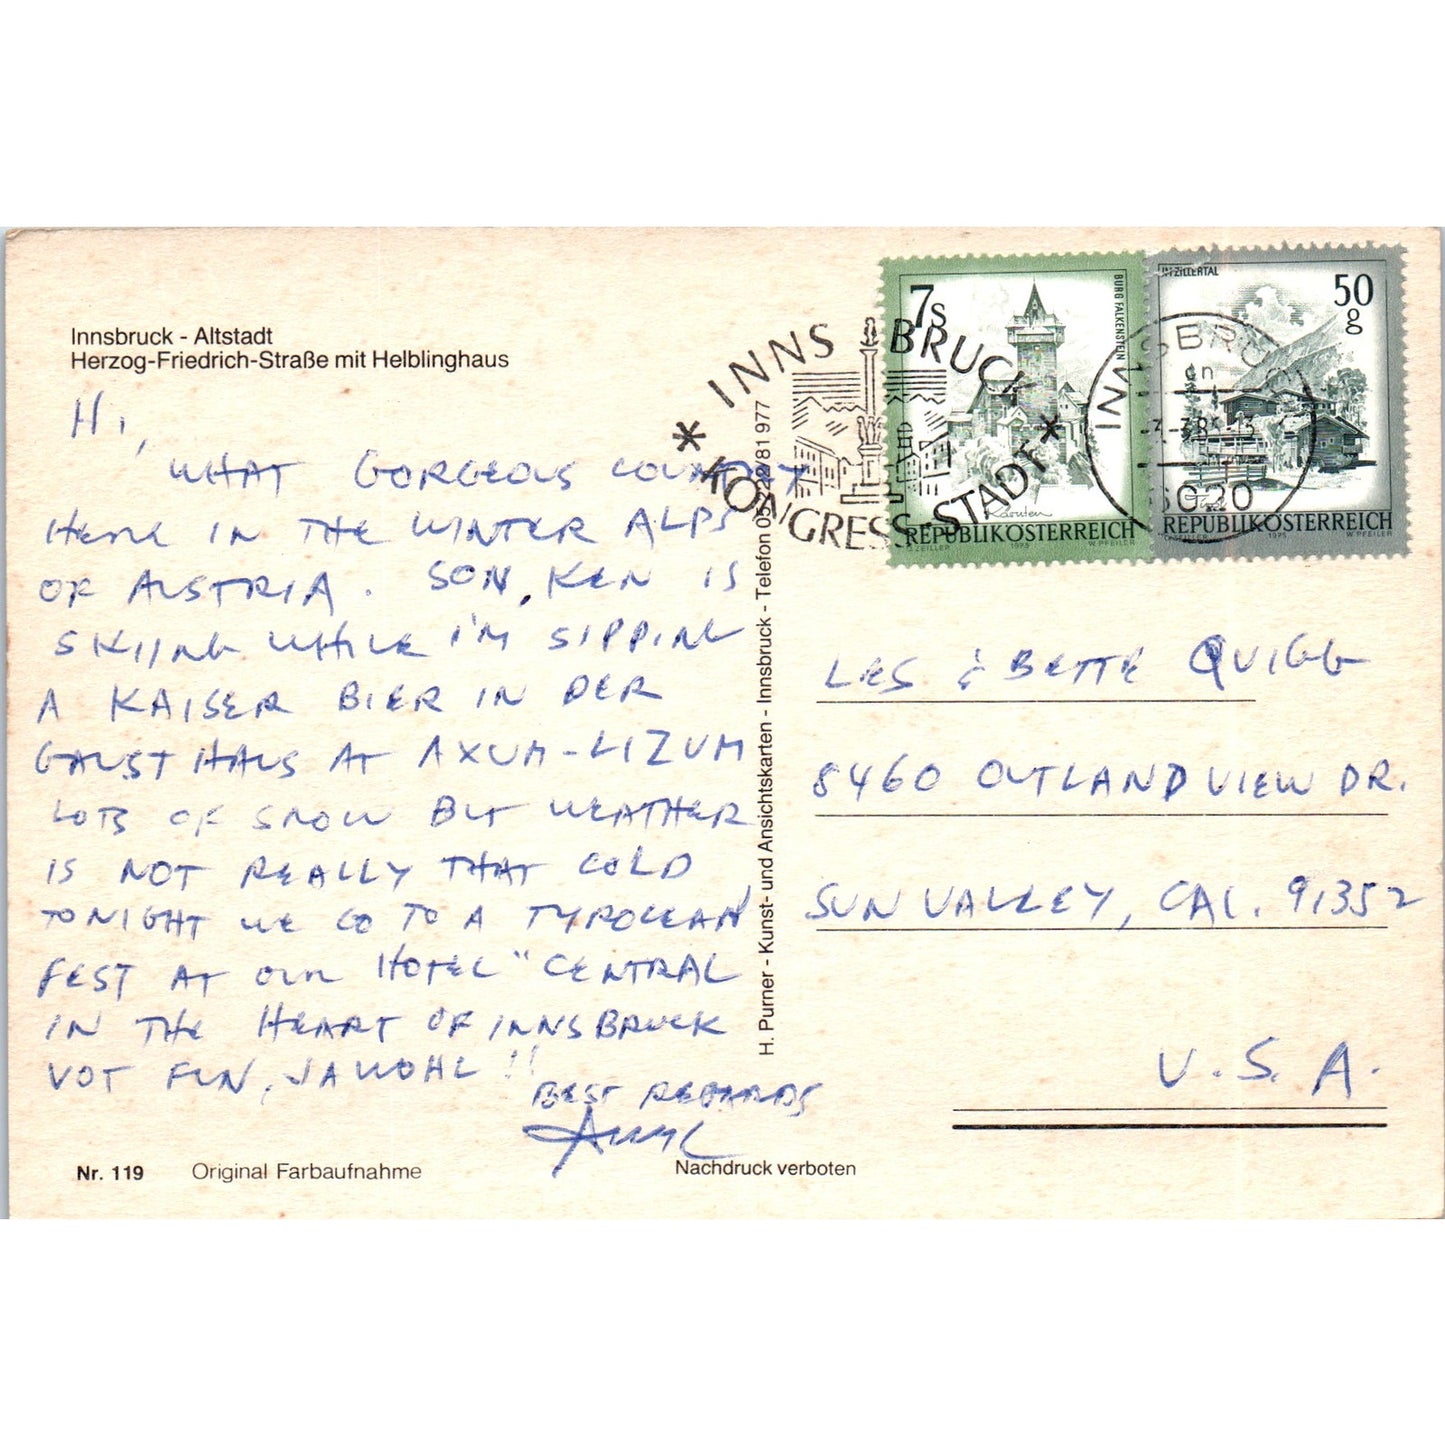 Innsbruck - Altstadt
Herzog-Friedrich-Straße mit Helblinghaus
HI,
WHAT GORGEOUS COUNTRY
HERE IN THE WINTER ALPS
OF AUSTRIA. SON, KEN IS
SKIING WHILE I'M SIPPING
A KAISER BIER IN DER
GAUST HAUS AT AXUM-LIZUM
LOTS OF SNOW BUT WEATHER
IS NOT REALLY THAT COLD
TONIGHT WE GO TO A TYROLEAN
FEST AT OUR HOTEL "CENTRAL
IN THE HEART OF INNSBRUCK
VOT FUN, JAWOHL !!
BEST REGARDS
Nr. 119 Original Farbaufnahme
Nachdruck verboten
H. Purner - Kunst- und Ansichtskarten - Innsbruck - Telefon 05222/81 977
* INNS BRUCK *
KONGRESS-STADT
7s
BURG FALKENSTEIN
Kärnten
REPUBLIK ÖSTERREICH
ZEILLER 1973 W. PFEILER
IM ZILLERTAL
50 g
REPUBLIK ÖSTERREICH
ZEILLER 1975 W. PFEILER
INNSBRUCK
6020
LES & BETTE QUIGG
8460 OUTLAND VIEW DR.
SUN VALLEY, CAL. 91352
U.S.A.